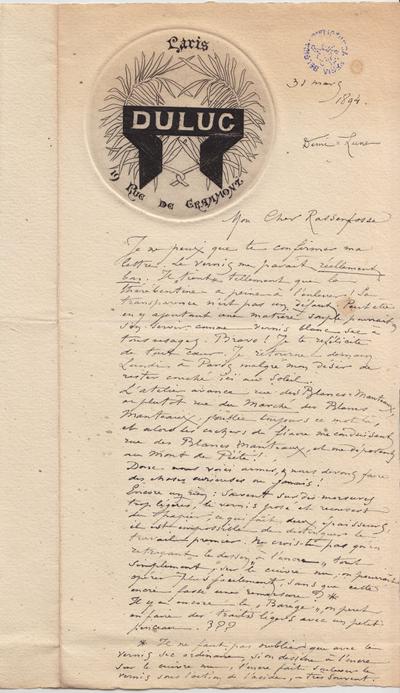 Paris
DULUC
19 RUE DE GRAMMONT
31 mars
1894.
Demi-Lune
Mon Cher Rassenfosse
Je ne peux que te confirmer ma
lettre. Le vernis me parait réellement
bon. Il tient tellement que la
thérébentine a peine à l'enlever! Sa
transparence n'est pas un défaut. Peut être
en y ajoutant une matière souple pourrait
on s'en servir comme vernis blanc sec à
tous usages. Bravo! Je te félicite
de tout cœur. Je retourne demain
Lundi, à Paris malgré mon désir de
rester couché ici au Soleil.
L'atelier avance, rue des Blancs-Manteaux,
ou plutôt rue du Marché des Blancs
Manteaux, j'oublie toujours ce mot là,
et alors les cochers de fiacre me conduisent
rue des Blancs Manteaux, et me déposent
au Mont de Piété!
Donc nous voici armés, & nous devons faire
des choses curieuses ou jamais!
Encore un mot: Souvent sur des morsures
trop légères, le vernis posé et recouvert
du papier, ce qui fait deux épaisseurs,
il est impossible de distinguer le
travail premier. Ne crois-tu pas qu'en
retraçant le dessin à l'encre, tout
simplement, sur le cuivre nu, on pourrait
opérer plus facilement, sans que cette
encre fasse une remorsure? *
Il y a encore le
en faire des traits légers avec un petit
pinceau. ???
* Il ne faut pas oublier que avec le
vernis sec ordinaire, si on dessine à l'encre
sur le cuivre nu, l'encre fait soulever le
vernis sous l'action de l'acide, très souvent.